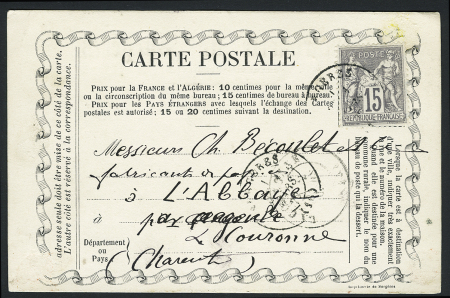 CARTE POSTALE
PRIX pour la FRANCE et l'ALGÉRIE: 10 centimes pour la même ville
ou la circonscription du même bureau; 15 centimes de bureau à bureau.
PRIX pour les PAYS ÉTRANGERS avec lesquels l'échange des Cartes
postales est autorisé: 15 ou 20 centimes suivant la destination.
POSTE
15
REPUBLIQUE FRANÇAISE
Messieurs Ch. Bécoulet & Cie
fabricants de
à L'Abbaye
à par
La Couronne
Département
ou
Pays
(Charente)
adresse seule doit être mise de ce côté de la carte.
l'autre côté est réservé à la correspondance.
Lorsque la carte est à destination
d'une ville, indiquer très exactement
la rue et le numéro de la maison.
Quand elle est destinée pour une
commune rurale, indiquer le nom du
bureau de poste qui la dessert.